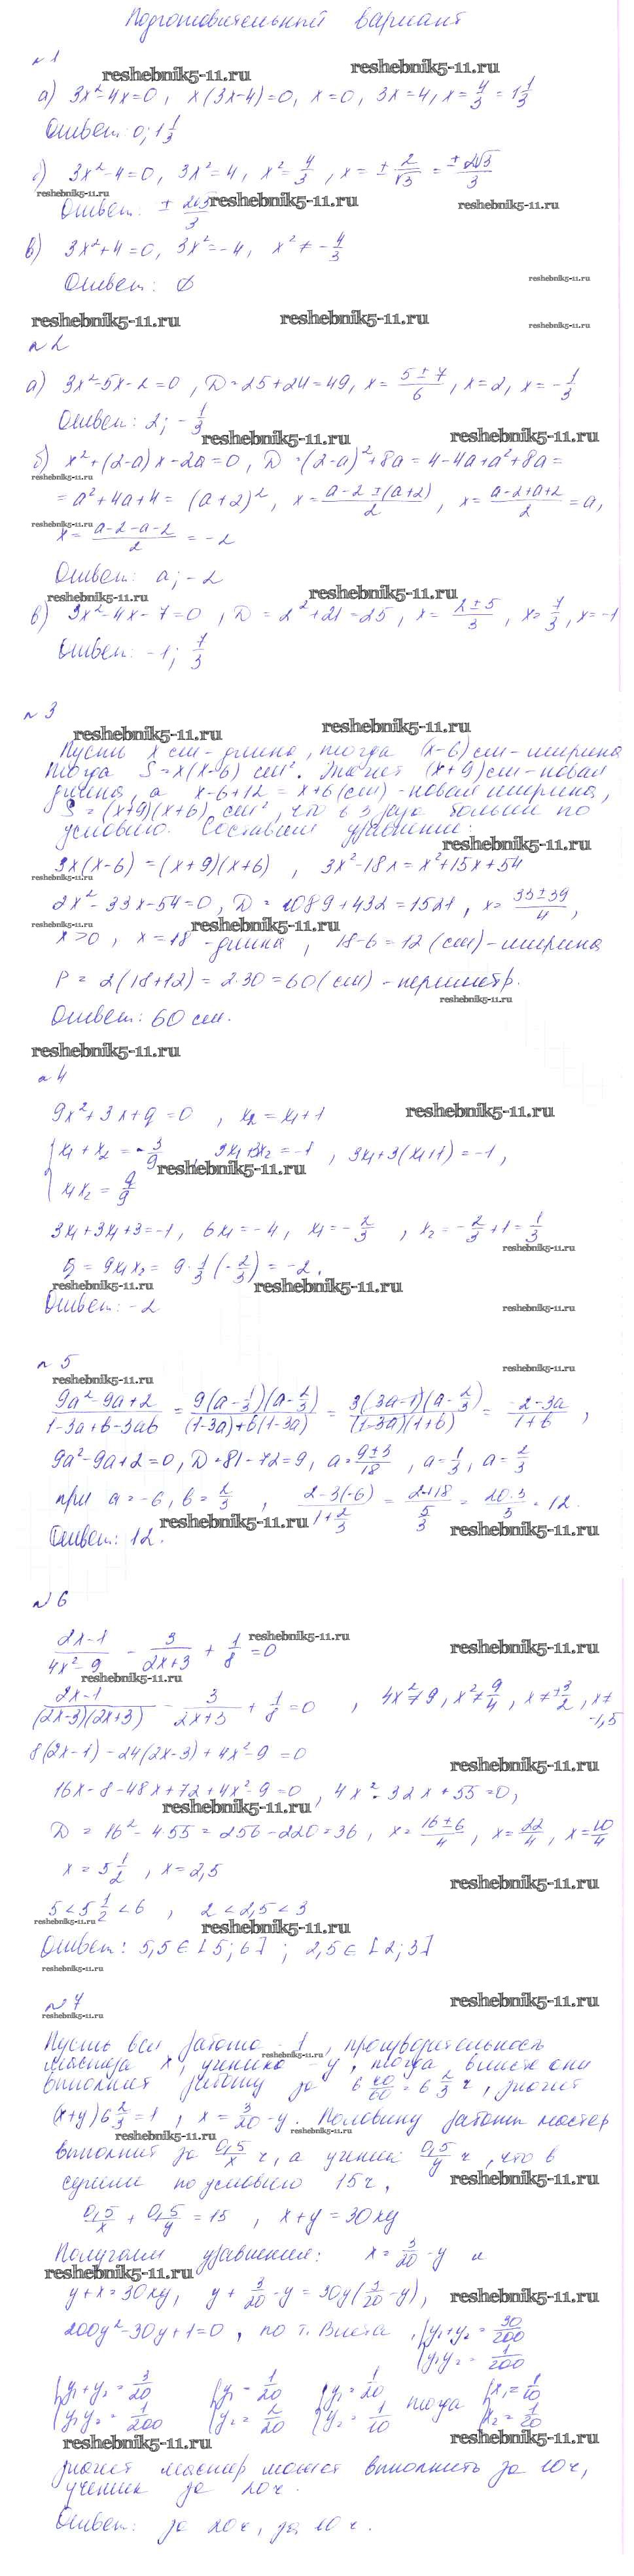 Подготовительный вариант
№1
reshebnik5-11.ru reshebnik5-11.ru
а) 3x²-4x=0, x(3x-4)=0, x=0, 3x=4, x=4/3=1 1/3
Ответ: 0; 1 1/3
б) 3x²-4=0, 3x²=4, x²=4/3, x=± 2/√3 = ±2√3/3
reshebnik5-11.ru reshebnik5-11.ru reshebnik5-11.ru
Ответ: ± 2√3/3
в) 3x²+4=0, 3x²=-4, x²≠-4/3
Ответ: ∅
reshebnik5-11.ru
reshebnik5-11.ru reshebnik5-11.ru reshebnik5-11.ru
№2
а) 3x²-5x-2=0, D=25+24=49, x=(5±7)/6, x=2, x=-1/3
Ответ: 2; -1/3
reshebnik5-11.ru reshebnik5-11.ru
б) x²+(2-a)x-2a=0, D=(2-a)²+8a=4-4a+a²+8a=
reshebnik5-11.ru
=a²+4a+4=(a+2)², x=(a-2±(a+2))/2, x=(a-2+a+2)/2=a,
reshebnik5-11.ru
x=(a-2-a-2)/2=-2
Ответ: a; -2
reshebnik5-11.ru reshebnik5-11.ru
в) 3x²-4x-7=0, D=2²+21=25, x=(2±5)/3, x=7/3, x=-1
Ответ: -1; 7/3
№3
reshebnik5-11.ru reshebnik5-11.ru
Пусть x см-длина, тогда (x-6) см-ширина
Тогда S=x(x-6) см². Значит (x+9) см-новая
длина, а x-6+12=x+6(см)-новая ширина,
S=(x+9)(x+6) см², что в 3 раза больше по
условию. Составим уравнение:
reshebnik5-11.ru
3x(x-6)=(x+9)(x+6), 3x²-18x=x²+15x+54
reshebnik5-11.ru
2x²-33x-54=0, D=1089+432=1521, x=(33±39)/4,
reshebnik5-11.ru reshebnik5-11.ru
x>0, x=18-длина, 18-6=12(см)-ширина
P=2(18+12)=2·30=60(см)-периметр.
reshebnik5-11.ru
Ответ: 60 см.
reshebnik5-11.ru
№4
9x²+3x+q=0, x₂=x₁+1
reshebnik5-11.ru
{x₁+x₂=-3/9, 3x₁+3x₂=-1, 3x₁+3(x₁+1)=-1,
reshebnik5-11.ru
{x₁x₂=q/9
3x₁+3x₁+3=-1, 6x₁=-4, x₁=-2/3, x₂=-2/3+1=1/3
reshebnik5-11.ru
q=9x₁x₂=9·1/3(-2/3)=-2.
reshebnik5-11.ru reshebnik5-11.ru
Ответ: -2
reshebnik5-11.ru
№5
reshebnik5-11.ru reshebnik5-11.ru
(9a²-9a+2)/(1-3a+b-3ab)=9(a-1/3)(a-2/3)/((1-3a)+b(1-3a))=3(3a-1)(a-2/3)/((1-3a)(1+b))=(2-3a)/(1+b),
9a²-9a+2=0, D=81-72=9, a=(9±3)/18, a=1/3, a=2/3
при a=-6, b=2/3, (2-3(-6))/(1+2/3)=(2+18)/(5/3)=20·3/5=12.
reshebnik5-11.ru reshebnik5-11.ru
Ответ: 12.
№6
reshebnik5-11.ru
(2x-1)/(4x²-9) - 3/(2x+3) + 1/8=0
reshebnik5-11.ru
reshebnik5-11.ru
(2x-1)/((2x-3)(2x+3)) - 3/(2x+3) + 1/8=0, 4x²≠9, x²≠9/4, x≠±3/2, x≠
-1,5
8(2x-1)-24(2x-3)+4x²-9=0
reshebnik5-11.ru
16x-8-48x+72+4x²-9=0, 4x²-32x+55=0,
reshebnik5-11.ru
D=16²-4·55=256-220=36, x=(16±6)/4, x=22/4, x=10/4
x=5 1/2, x=2,5
reshebnik5-11.ru
5<5 1/2<6, 2<2,5<3
reshebnik5-11.ru reshebnik5-11.ru
Ответ: 5,5∈[5;6]; 2,5∈[2;3]
reshebnik5-11.ru
№7
reshebnik5-11.ru reshebnik5-11.ru
Пусть вся работа-1, производительность
мастера x, ученика-y, тогда вместе они
reshebnik5-11.ru
выполнят работу за 6 40/60=6 2/3 ч, значит
(x+y)6 2/3=1, x=3/20-y. Половину работы мастер
reshebnik5-11.ru reshebnik5-11.ru
выполнит за 0,5/x ч, а ученик 0,5/y ч, что в
сумме по условию 15ч,
reshebnik5-11.ru
0,5/x+0,5/y=15, x+y=30xy
Получаем уравнение: x=3/20-y и
reshebnik5-11.ru
y+x=30xy, y+3/20-y=30y(3/20-y),
reshebnik5-11.ru
200y²-30y+1=0, по т. Виета, {y₁+y₂=30/200
{y₁y₂=1/200
{y₁+y₂=3/20 {y₁=1/20 {y₁=1/20 тогда {x₁=1/10
{y₁y₂=1/200 {y₂=2/20 {y₂=1/10 {x₂=1/20
reshebnik5-11.ru reshebnik5-11.ru
значит мастер может выполнить за 10ч,
ученик за 20ч.
Ответ: за 20ч, за 10ч.